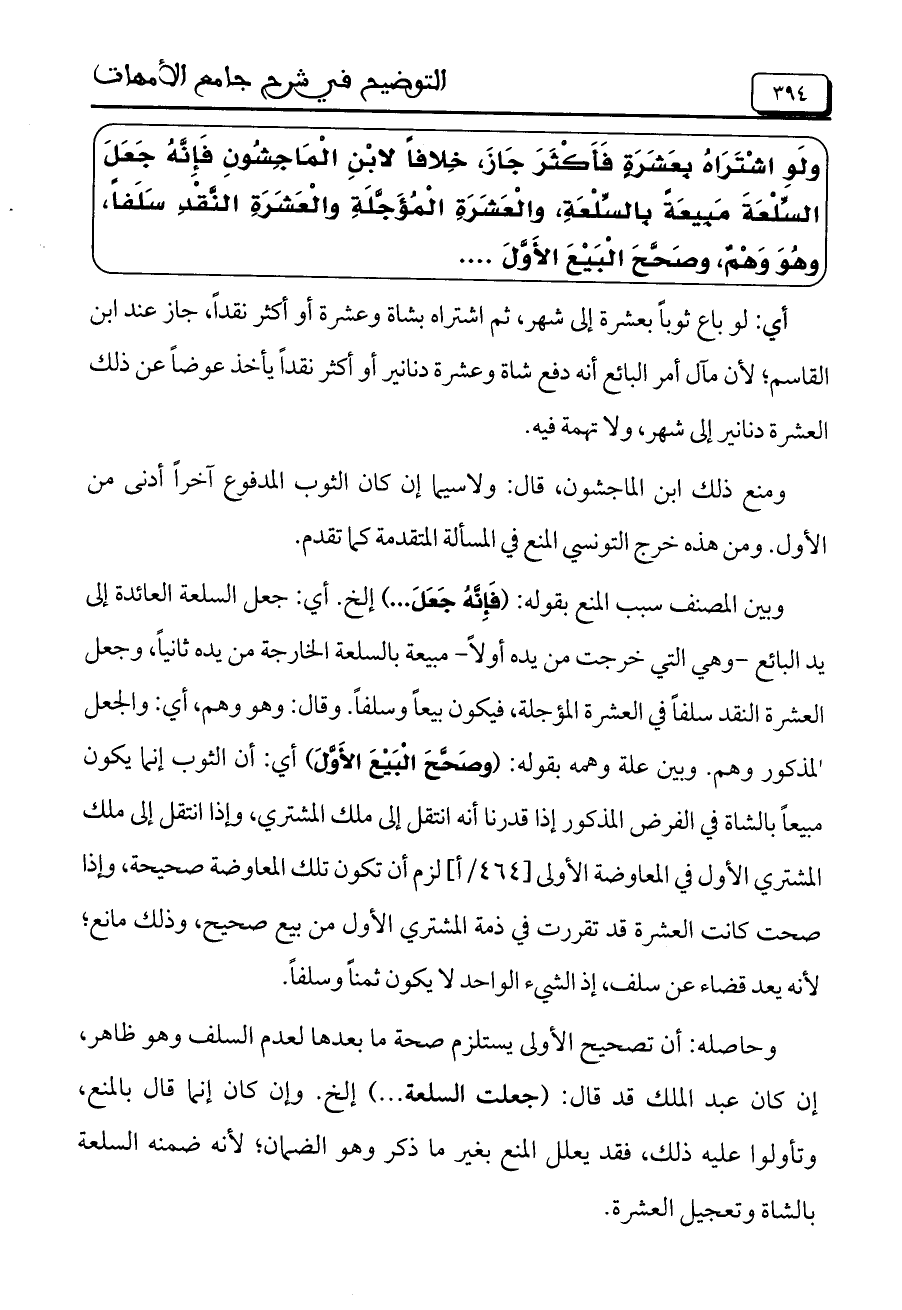 ٣٩٤ التوضيح في شرح جامع الأمهات
ولَوِ اشْتَرَاهُ بِعَشَرَةٍ فَأَكْثَرَ جَازَ، خلافاً لابْنِ الْمَاجِشُونِ فَإِنَّهُ جَعَلَ
السِّلْعَةَ مَبِيعَةً بِالسِّلْعَةِ، والْعَشَرَةِ الْمُؤَجَّلَةِ والْعَشَرَةِ النَّقْدِ سَلَفاً،
وهُوَ وَهْمٌ، وصَحَّحَ الْبَيْعَ الأَوَّلَ ....
أي: لو باع ثوباً بعشرة إلى شهر، ثم اشتراه بشاة وعشرة أو أكثر نقداً، جاز عند ابن
القاسم؛ لأن مآل أمر البائع أنه دفع شاة وعشرة دنانير أو أكثر نقداً يأخذ عوضاً عن ذلك
العشرة دنانير إلى شهر، ولا تهمة فيه.
ومنع ذلك ابن الماجشون، قال: ولاسيما إن كان الثوب المدفوع آخراً أدنى من
الأول. ومن هذه خرج التونسي المنع في المسألة المتقدمة كما تقدم.
وبين المصنف سبب المنع بقوله: (فَإِنَّهُ جَعَلَ...) إلخ. أي: جعل السلعة العائدة إلى
يد البائع -وهي التي خرجت من يده أولاً- مبيعة بالسلعة الخارجة من يده ثانياً، وجعل
العشرة النقد سلفاً في العشرة المؤجلة، فيكون بيعاً وسلفاً. وقال: وهو وهم، أي: والجعل
المذكور وهم. وبين علة وهمه بقوله: (وصَحَّحَ الْبَيْعَ الأَوَّلَ) أي: أن الثوب إنما يكون
مبيعاً بالشاة في الفرض المذكور إذا قدرنا أنه انتقل إلى ملك المشتري، وإذا انتقل إلى ملك
المشتري الأول في المعاوضة الأولى [٤٦٤/ أ] لزم أن تكون تلك المعاوضة صحيحة، وإذا
صحت كانت العشرة قد تقررت في ذمة المشتري الأول من بيع صحيح، وذلك مانع؛
لأنه يعد قضاء عن سلف، إذ الشيء الواحد لا يكون ثمناً وسلفاً.
وحاصله: أن تصحيح الأولى يستلزم صحة ما بعدها لعدم السلف وهو ظاهر،
إن كان عبد الملك قد قال: (جعلت السلعة...) إلخ. وإن كان إنما قال بالمنع،
وتأولوا عليه ذلك، فقد يعلل المنع بغير ما ذكر وهو الضمان؛ لأنه ضمنه السلعة
بالشاة وتعجيل العشرة.